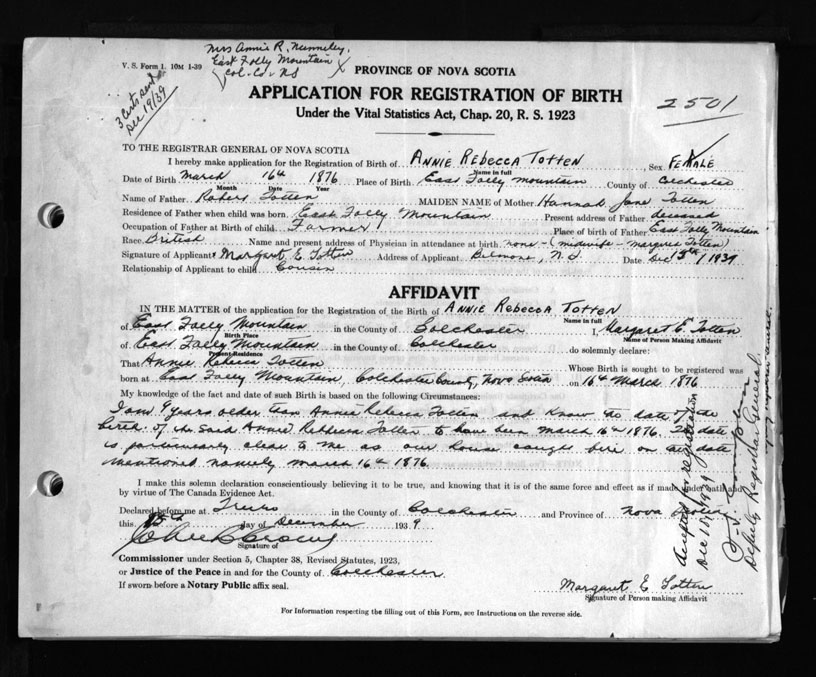 Mrs Annie R. Nunneley,
East Folly Mountain
Col. Co. NS
V. S. Form 1. 10M 1-39
3 certs sent
Dec 19/39
PROVINCE OF NOVA SCOTIA
APPLICATION FOR REGISTRATION OF BIRTH
Under the Vital Statistics Act, Chap. 20, R. S. 1923
2501
TO THE REGISTRAR GENERAL OF NOVA SCOTIA
I hereby make application for the Registration of Birth of ANNIE REBECCA TOTTEN, Sex FEMALE
Name in full
Date of Birth March 16th 1876 Place of Birth East Folly Mountain County of Colchester
Month Date Year
Name of Father Robert Totten MAIDEN NAME of Mother Hannah Jane Totten
Residence of Father when child was born East Folly Mountain Present address of Father deceased
Occupation of Father at Birth of child Farmer Place of birth of Father East Folly Mountain
Race British Name and present address of Physician in attendance at birth none - (midwife - Margaret Totten)
Signature of Applicant Margaret E. Totten Address of Applicant Belmont, N.S. Date Dec 15th / 1939
Relationship of Applicant to child Cousin
AFFIDAVIT
IN THE MATTER of the application for the Registration of the Birth of ANNIE REBECCA TOTTEN
Name in full
of East Folly Mountain in the County of Colchester I, Margaret E. Totten
Birth Place Name of Person Making Affidavit
of East Folly Mountain in the County of Colchester do solemnly declare:
Present Residence
That Annie Rebecca Totten Whose Birth is sought to be registered was
born at East Folly Mountain, Colchester County, Nova Scotia on 16th March 1876
My knowledge of the fact and date of such Birth is based on the following Circumstances:
I am 9 years older than Annie Rebecca Totten and know the date of the
birth of the said Annie Rebecca Totten to have been March 16th 1876. The date
is particularly clear to me as our house caught fire on the date
mentioned namely March 16th 1876
I make this solemn declaration conscientiously believing it to be true, and knowing that it is of the same force and effect as if made under oath and
by virtue of The Canada Evidence Act.
Declared before me at Truro in the County of Colchester and Province of Nova Scotia
this 15th day of December 1939
Signature of
Commissioner under Section 5, Chapter 38, Revised Statutes, 1923,
or Justice of the Peace in and for the County of Colchester
If sworn before a Notary Public affix seal.
Margaret E Totten
Signature of Person making Affidavit
For Information respecting the filling out of this Form, see Instructions on the reverse side.
Accepted for registration
Dec 18/1939
Deputy Registrar General